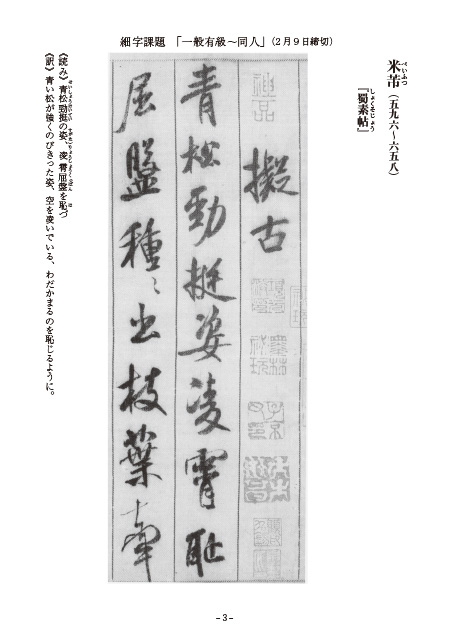 細字課題　「一般有級～同人」（２月９日締切）
米芾（五九六～六五八）
べいふつ
『蜀素帖』
しょくそじょう
擬古
青松勁挺姿凌霄恥
屈盤種々出枝葉牽
《読み》青松勁挺の姿、凌霄屈盤を恥づ
《訳》青い松が強くのびきった姿、空を凌いでいる、わだかまるのを恥じるように。
-3-